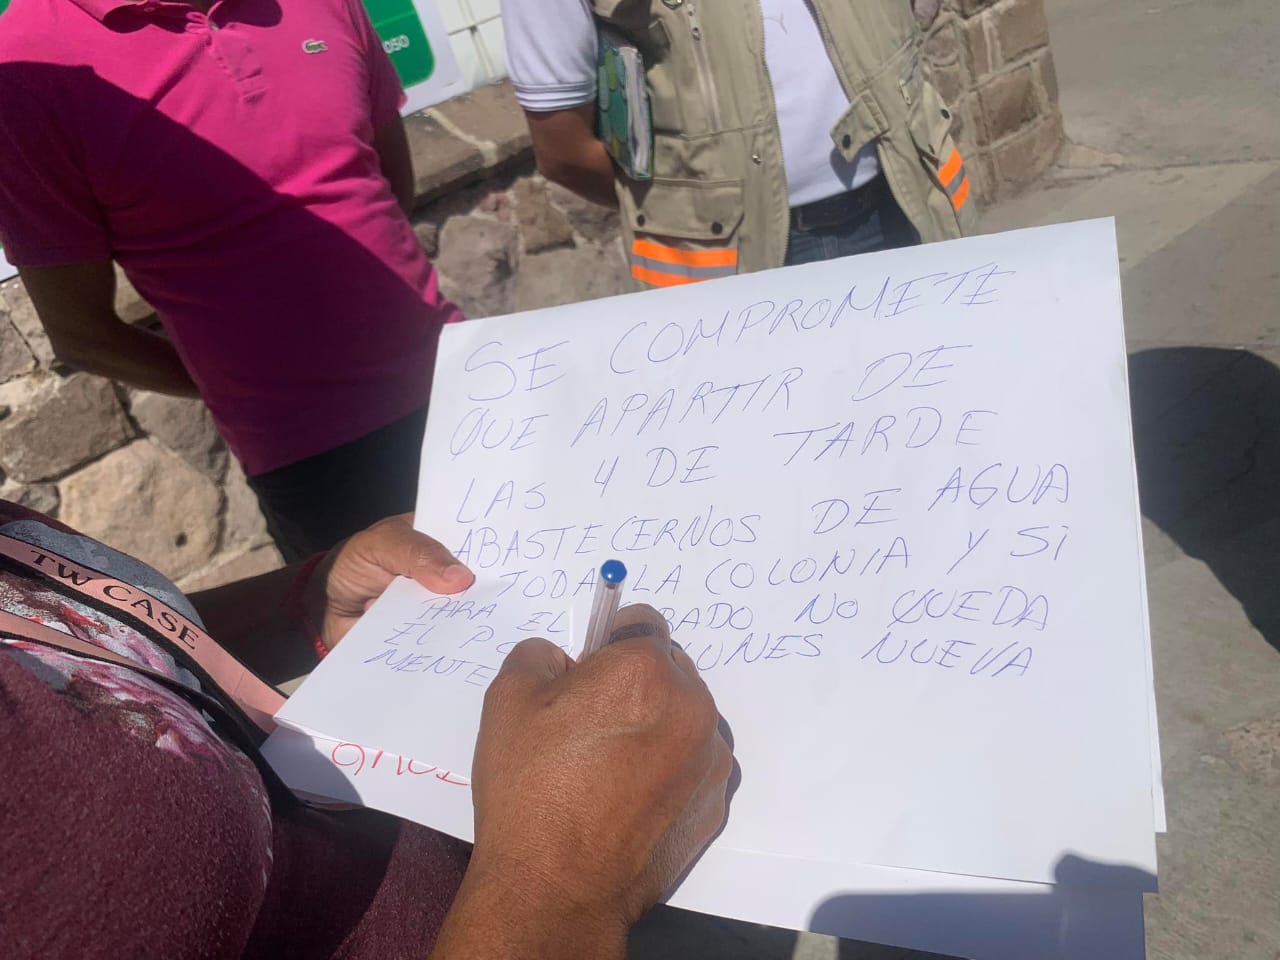 050
SE COMPROMETE
QUE APARTIR DE
LAS 4 DE TARDE
ABASTECERNOS DE AGUA
TODA LA COLONIA Y SI
PARA EL NO QUEDA
EL LUNES NUEVA
MENTE
TW CASE